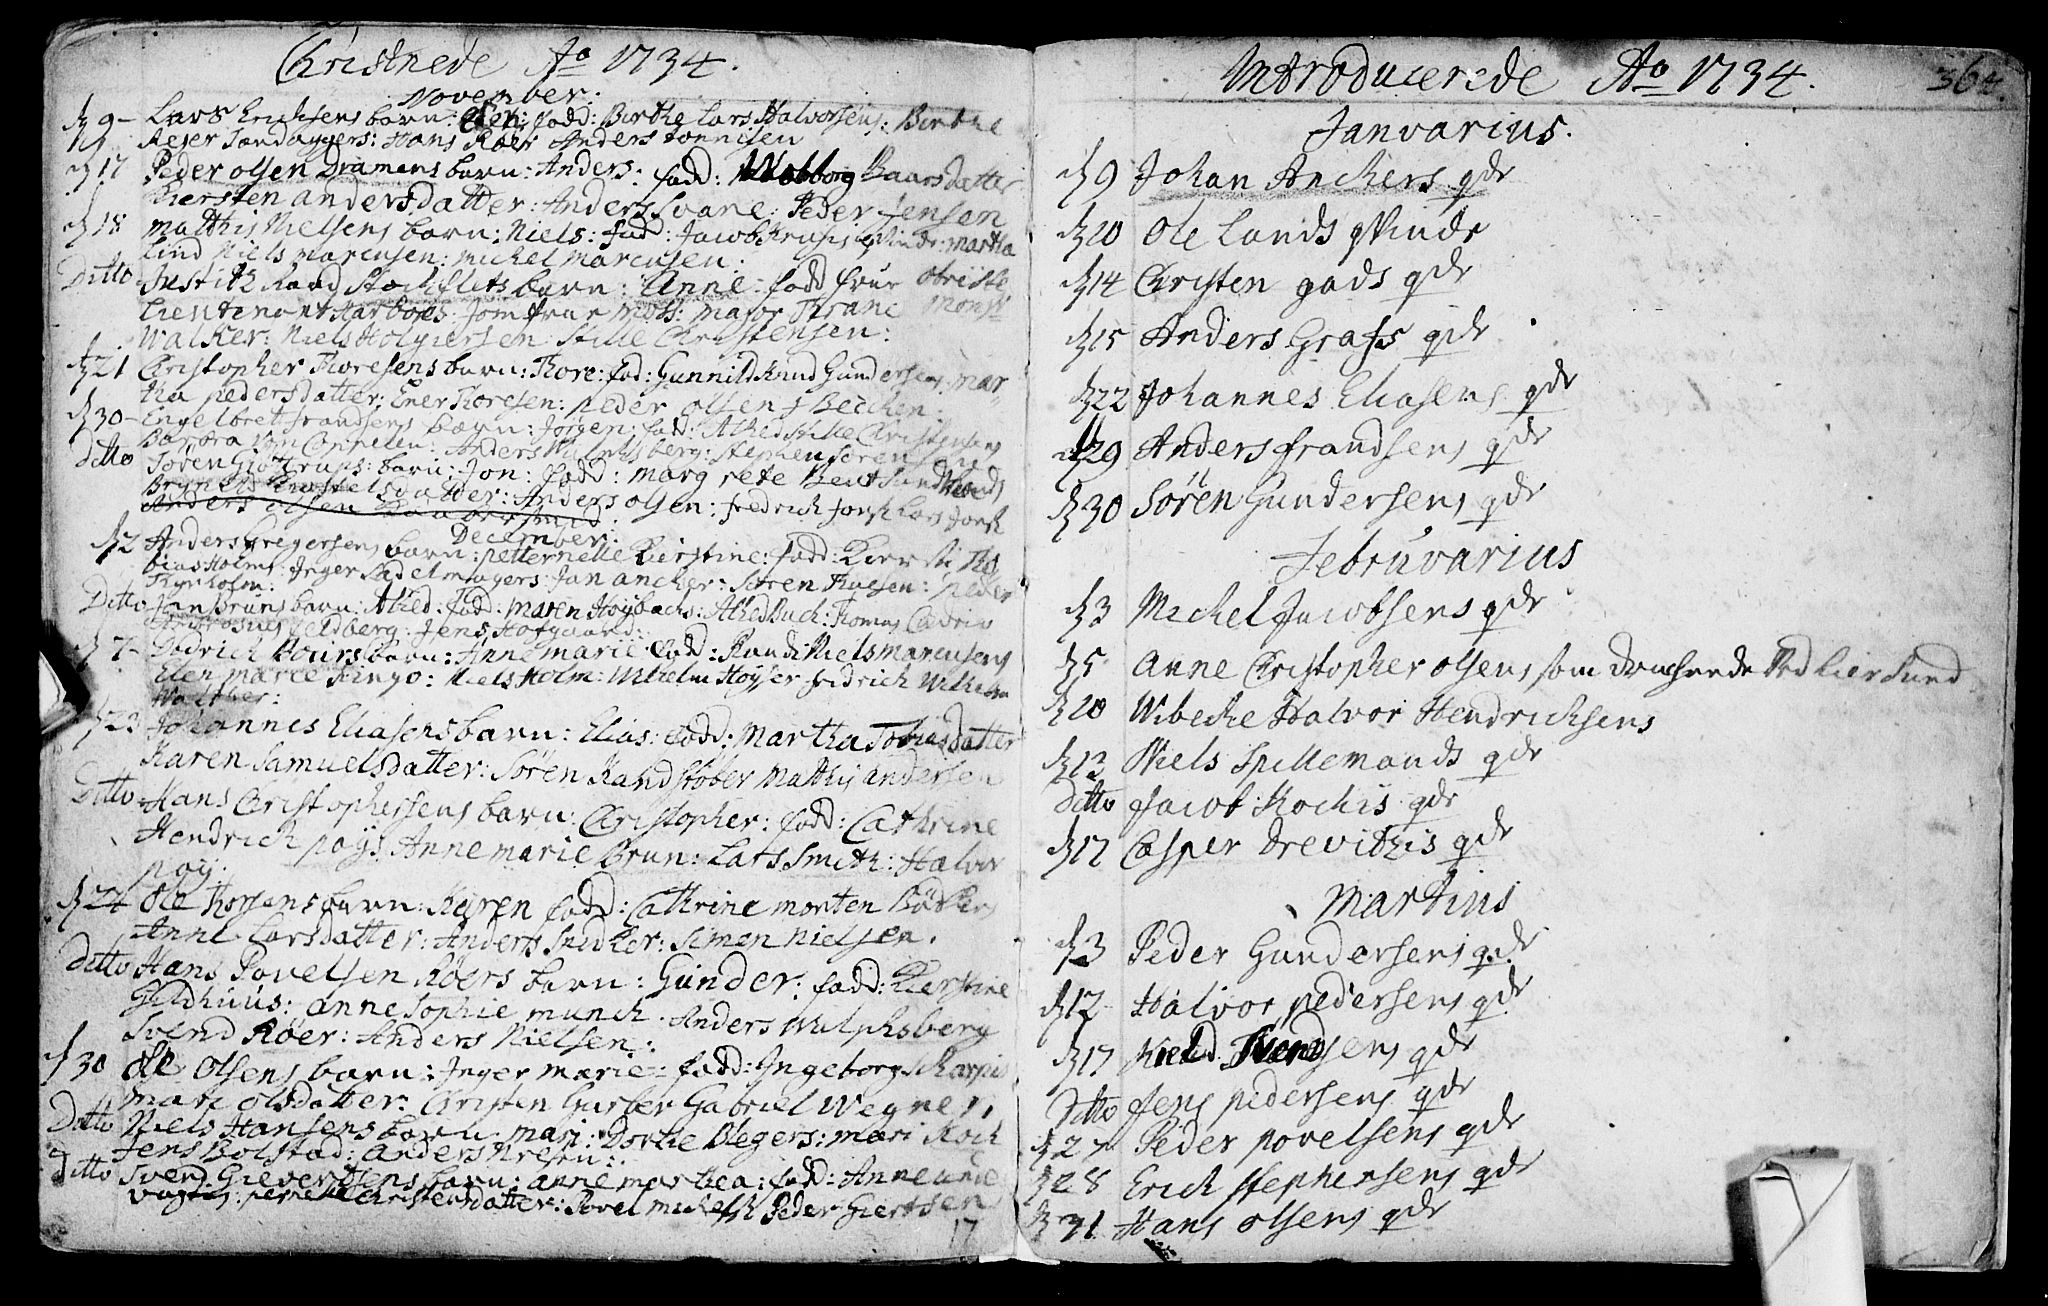 Christnede Ao 1734.
November:
d 9 - Lars Erichsens barn: fadd: Birthe Lars Halvorsens: Birthe
Reyer Hans Röer Anders Tønnisen
d 17 Peder olsen Dramens barn: Anders: fadd: Wobborg Baarsdatter
Kiersten andersdatter: Anders Svane: Peder Jensen
d 18 Matthis Nielsens barn: Niels: fad: Jacob Krusis qvinde: Martha
Lind Niels Marcusen: Michel Marcusen:
Ditto Justitz Raad Stockflets barn: Anne: fadd frue Obriste
Lieutenant Jomfrue Mots: Major Thrane Mons
Walker: Niels Holgiersen Stille Christensen:
d 21 Christopher Thoresens barn: Thore: fad: Gunnild Knud Gundersens Mar
tha pedersdatter: Ener Thoresen: peder olsen
d 30 - Engelbret frandsens barn: Jørgen: fad: Alhed Stille Christensens
Barbra von Anders Wulphsberg: Stephen Sørensen
ditto Søren Giöttrups: barn: Jon: fadd: margrete Bent
datter: Anders olsen: fredrich Jonsk Lars Jonsk
Anders olsen
December:
d 2 Anders Gregersens barn: petternelle Kierstine: fadd: To
bias Holms: Inger Sadelmagers: Jan ancher: Søren Thuesen: Peder
Thynholm:
Ditto Jan Bruns barn: Alhed: fad: Maren Høybachs: Alhed Buch: Thomas
Ambrosius Veldberg: Jens Hofgaard:
d 7 - Didrich barn: Anne Marie fadd: Randi Niels Marcusens
Elen Marie Ringo: Niels Holm: Wilhelm Høyser fridrich Wilhelm
Walther:
d 23 Johannes Eliasens barn: Elias: fadd: Martha Tobiasdatter
Karen Samuelsdatter: Søren Kandstøber Matthis andersen
Ditto Hans Christophersens barn: Christopher: fadd: Cathrine
Hendrich pays Anne Marie Brun: Lars Smith: Halvor
pay:
d 24 Ole Thorsens barn: Karen fadd: Cathrine morten Bödkers
Anne Larsdatter: Anders Snidker: Simen Nielsen.
Ditto Hans Povelsen Röers barn: Gunder: fadd: Kierstine
Gildhuus: anne Sophie munch. Anders Wulphsberg
Svend Röer: Anders Nielsen:
d 30 Ole Olsens barn: Inger marie: fadd: Ingeborg
mari olsdatter: Christen Gabriel Wegner,
Ditto Niels Hansens barn mari: Dorthe Blegers: mari Koch
Jens Bolstad: Anders
Ditto Svend Gievertsens barn: anne marthea: fadd: Anne
pernelle Christensdatter: Povel Peder Giertsen
17
Introducerede Ao 1734.
364.
Januarius.
d 9 Johan Anchers qde
d 20 Ole Lands qvinde
d 14 Christen gads qde
d 15 Anders Grafs qde
d 22 Johannes Eliasens qde
d 29 Anders frandsens qde
d 30 Søren Gundersens qde
Februvarius
d 3 Michel Jacobsens qde
d 5 Anne Christopher olsens som druchnede Ved Lier Sund
d 20 Wibeche Halvor Hendrichsens
d 13 Niels Spillemands qde
Ditto Jacob Kochis qde
d 17 Casper Drevithis qde
Martius
d 3 Peder Gundersens qde
d 12 Halvor pedersens qde
d 17 Kield Svendsens qde
Ditto Jens pedersens qde
d 27 Peder povelsens qde
d 28 Erich Stephensens qde
d 31 Hans olsens qde